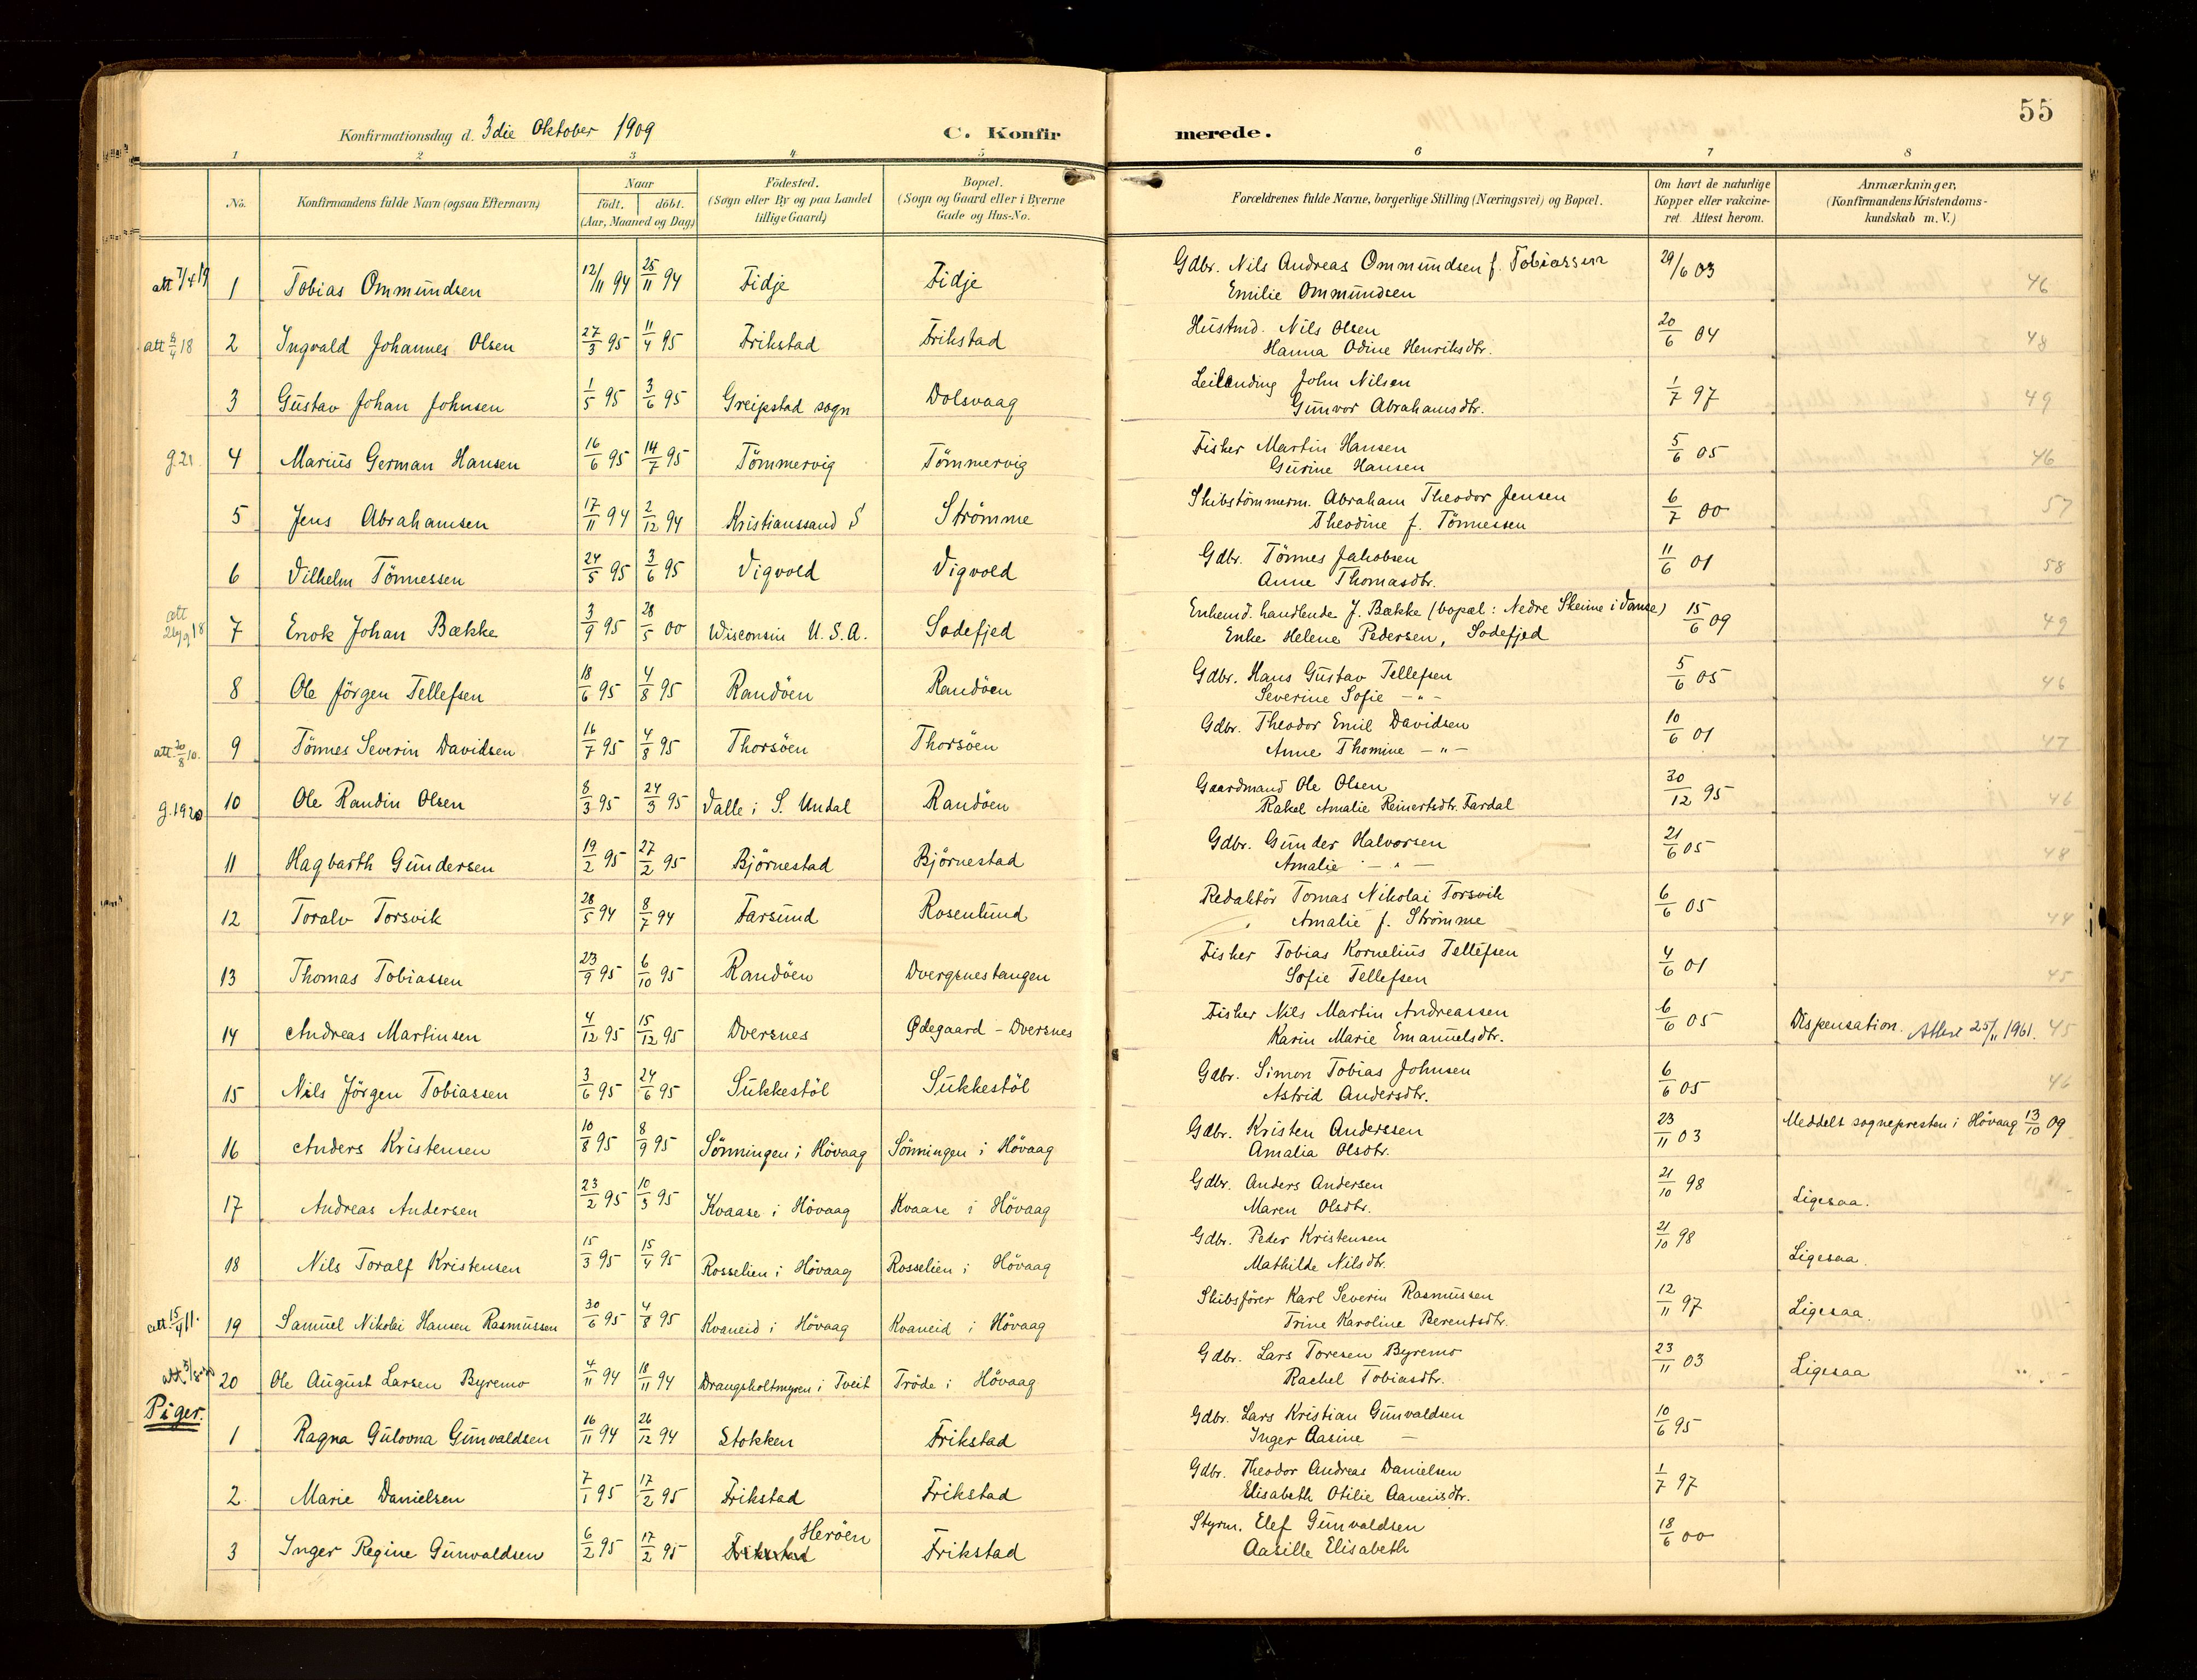 55
Konfirmationsdag d. 3die Oktober 1909
C. Konfirmerede.
1 2 3 4 5 6 7 8
No.
Konfirmandens fulde Navn (ogsaa Efternavn)
Naar
födt. döbt.
(Aar, Maaned og Dag)
Födested.
(Sogn eller By og paa Landet
tillige Gaard)
Bopæl.
(Sogn og Gaard eller i Byerne
Gade og Hus-No.
Forældrenes fulde Navne, borgerlige Stilling (Næringsvei) og Bopæl.
Om havt de naturlige
Kopper eller vakcine-
ret. Attest herom.
Anmærkninger,
(Konfirmandens Kristendoms-
kundskab m. V.)
att 7/4 19 1 Tobias Ommundsen 12/11 94 25/11 94 Fidje Fidje Gdbr. Nils Andreas Ommundsen f. Tobiassen 29/6 03 46
Emilie Ommundsen
att 18 2 Ingvald Johannes Olsen 27/3 95 11/4 95 Frikstad Frikstad Hustmd. Nils Olsen 20/6 04 48
Hanna Odine Henriksdtr.
3 Gustav Johan Johnsen 1/5 95 3/6 95 Greipstad sogn Dolsvaag Leilending John Nilsen 1/7 97 49
Gunvor Abrahamsdtr.
g. 21. 4 Marius German Hansen 16/6 95 14/7 95 Tömmervig Tömmervig Fisker Martin Hansen 5/6 05 46
Gurine Hansen
5 Jens Abrahamsen 17/11 94 2/12 94 Kristianssand S Strömme Skibstömmerm. Abraham Theodor Jensen 6/7 00 57
Theodine f. Tönnessen
6 Vilhelm Tönnessen 24/5 95 3/6 95 Vigvold Vigvold Gdbr. Tönnes Jakobsen 11/6 01 58
Anne Thomasdtr.
att 18 7 Enok Johan Bække 3/9 95 28/5 00 Wisconsin U. S. A. Sodefjed Enkemd. handlende J. Bække (bopæl: Nedre Skeime i Vanse) 15/6 09 49
Enke Helene Pedersen, Sodefjed
8 Ole Jörgen Tellefsen 18/6 95 4/8 95 Randöen Randöen Gdbr. Hans Gustav Tellefsen 5/6 05 46
Severine Sofie — " —
att 20/8 10. 9 Tönnes Severin Davidsen 16/7 95 4/8 95 Thorsöen Thorsöen Gdbr. Theodor Emil Davidsen 10/6 01 47
Anne Thomine — " —
g. 1920 10 Ole Randin Olsen 8/3 95 24/3 95 Valle i S. Undal Randöen Gaardmand Ole Olsen 30/12 95 46
Rakel Amalie Reinertsdtr. Fardal
11 Hagbarth Gundersen 19/2 95 27/2 95 Björnestad Björnestad Gdbr. Gunder Halvorsen 21/6 05 48
Amalie — " —
12 Toralv Torsvik 28/5 94 8/7 94 Farsund Rosenlund Redaktör Tomas Nikolai Torsvik 6/6 05 44
Amalie f. Strömme
13 Thomas Tobiassen 23/9 95 6/10 95 Randöen Dvergsnestangen Fisker Tobias Kornelius Tellefsen 4/6 01 45
Sofie Tellefsen
14 Andreas Martinsen 4/12 95 15/12 95 Dversnes Ødegaard - Dversnes Fisker Nils Martin Andreassen 6/6 05 Dispensation. Attest 25/11 1961. 45
Karin Marie Emanuelsdtr.
15 Nils Jörgen Tobiassen 3/6 95 24/6 95 Sukkestöl Sukkestöl Gdbr. Simon Tobias Johnsen 6/6 05 46
Astrid Andersdtr.
16 Anders Kristensen 10/8 95 8/9 95 Sönningen i Hövaag Sönningen i Hövaag Gdbr. Kristen Anderssen 23/11 03 Meddelt sognepresten i Hövaag 13/10 09
Amalia Olsdtr.
17 Andreas Andersen 23/2 95 10/3 95 Kvaase i Hövaag Kvaase i Hövaag Gdbr. Anders Andersen 21/10 98 Ligesaa.
Maren Olsdtr.
18 Nils Toralf Kristensen 15/3 95 15/4 95 Rosselien i Hövaag Rosselien i Hövaag Gdbr. Peder Kristensen 21/10 98 Ligesaa.
Mathilde Nilsdtr.
att. 15/4 11. 19 Samuel Nikolai Hansen Rasmussen 30/6 95 4/8 95 Kvaneid i Hövaag Kvaneid i Hövaag Skibsförer Karl Severin Rasmussen 12/11 97 Ligesaa.
Trine Karoline Berentsdtr.
att. 20 Ole August Larsen Byremo 4/11 94 18/11 94 Drangsholtmyren i Tveit Tröde i Hövaag Gdbr. Lars Toresen Byremo 23/11 03 Ligesaa
Rachel Tobiasdtr.
Piger.
1 Ragna Gulovna Gunvaldsen 16/11 94 26/12 94 Stokken Frikstad Gdbr. Lars Kristian Gunvaldsen 10/6 95
Inger Aasine —
2 Marie Danielsen 7/1 95 17/2 95 Frikstad Frikstad Gdbr. Theodor Andreas Danielsen 1/7 97
Elisabeth Otilie Aanensdtr.
3 Inger Regine Gunvaldsen 6/2 95 17/2 95 Frikstad Heröen Frikstad Styrm. Elef Gunvaldsen 18/6 00
Aasille Elisabeth